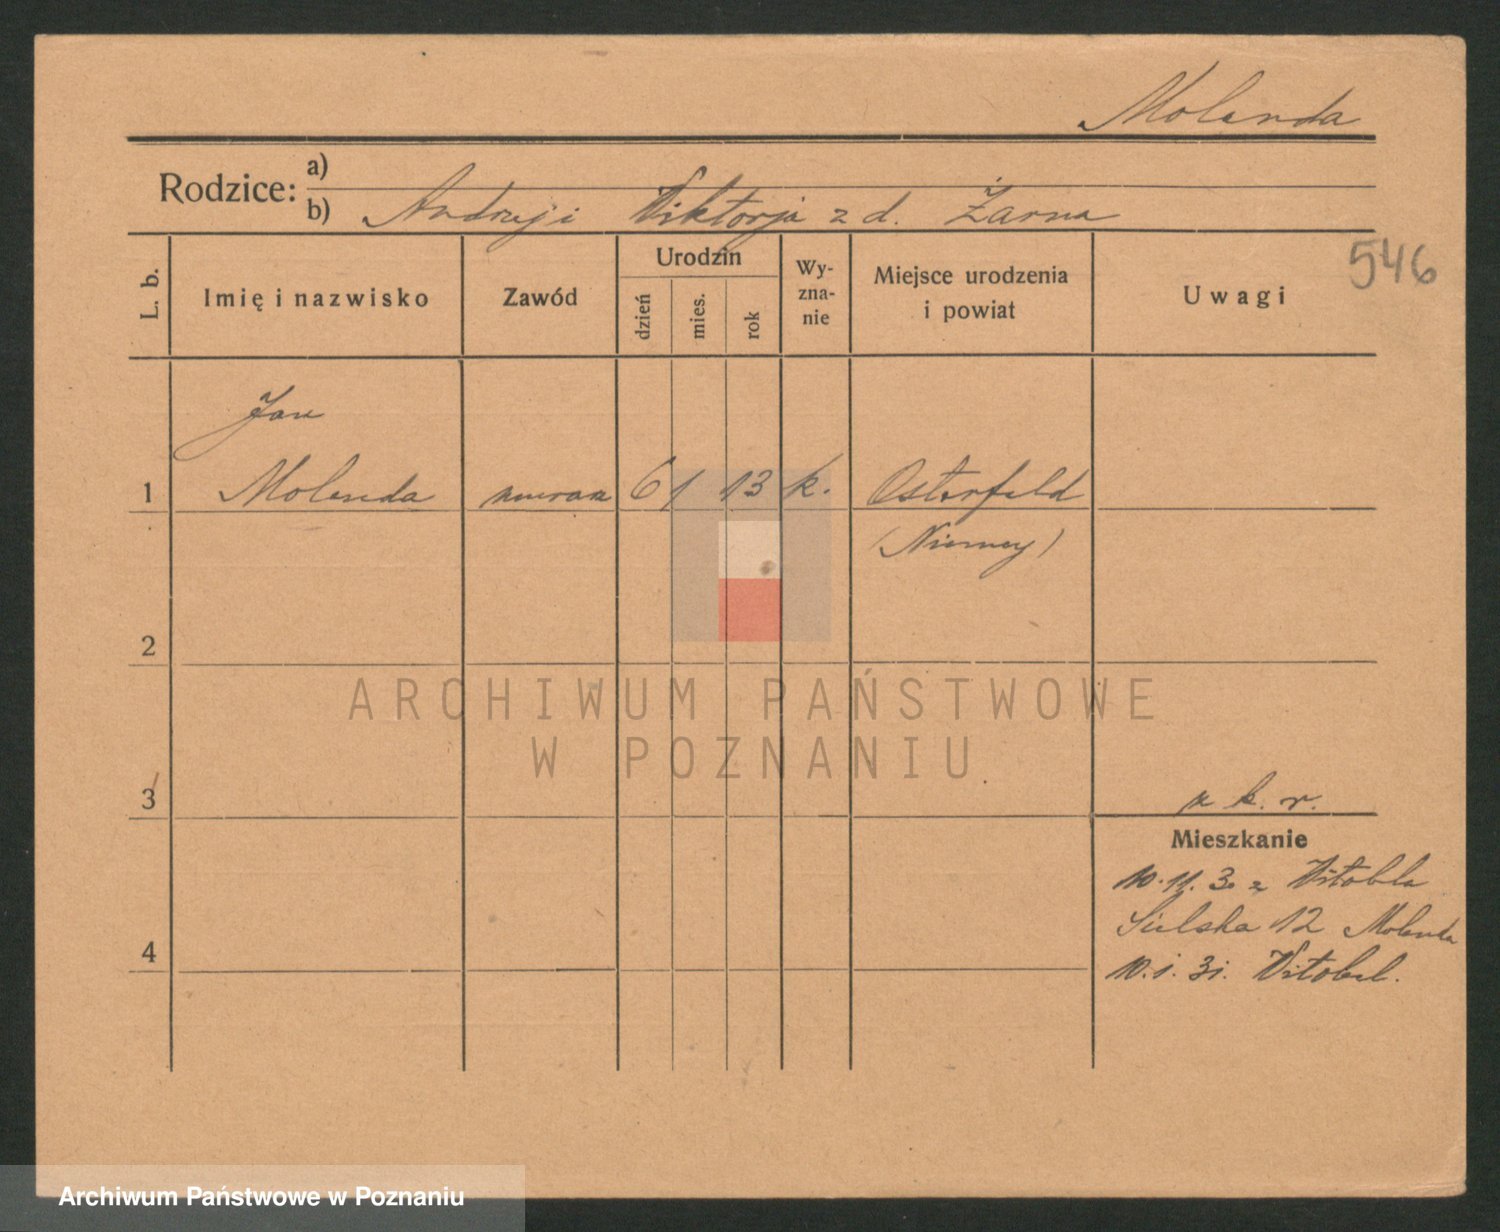 Molenda
Rodzice:
a)
b) Andrzej i Wiktorja z d. Żarna
546
L. b.
Imię i nazwisko
Zawód
Urodzin
dzień
mies.
rok
Wy-
zna-
nie
Miejsce urodzenia
i powiat
Uwagi
Jan
1 Molenda murarz 6 1 13 k. Osterfeld
(Niemcy)
2
ARCHIWUM PAŃSTWOWE
W POZNANIU
3
k. r.
Mieszkanie
10.11.30 z Witobla
Sielska 12 Molenda
10.1.31. Witobel.
4
Archiwum Państwowe w Poznaniu